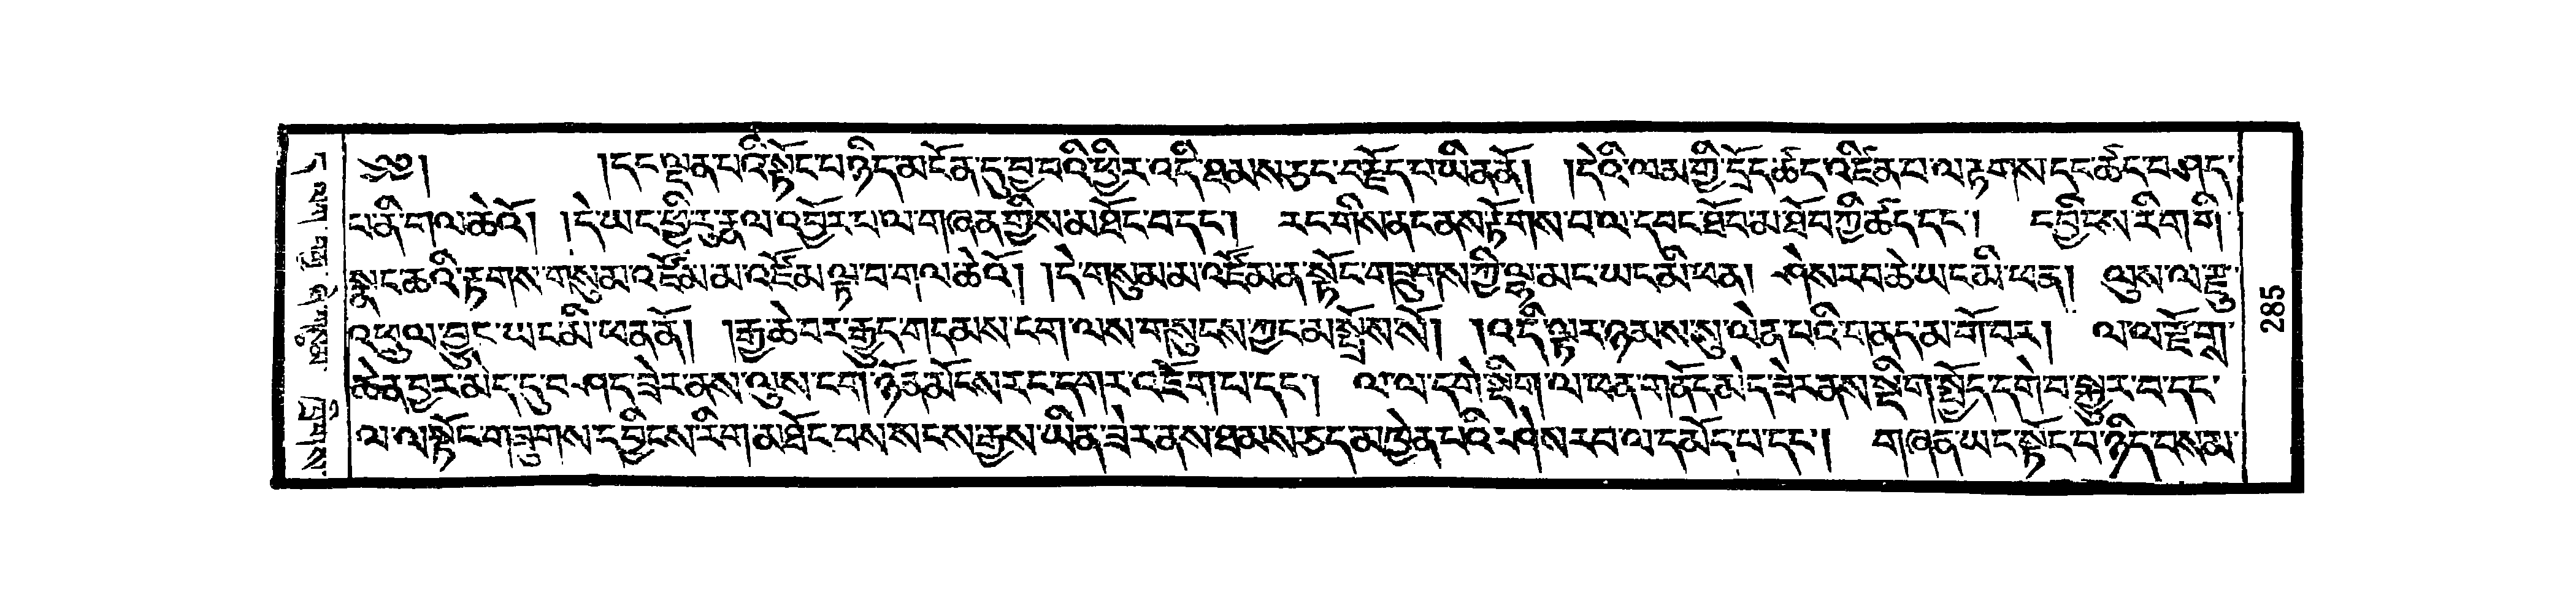 ༄༅། །དང་ལྡན་པའི་སྟོང་པ་ཉིད་མངོན་དུ་བྱ་བའི་ཕྱིར་འདི་ཐམས་ཅད་བརྗོད་པ་ཡིན་ནོ། །དེའི་ལམ་གྱི་དྲོད་ཚད་འཛིན་པ་ལ་རྟགས་དང་ཚད་བཤད་
པ་ནི་གལ་ཆེའོ། །དེ་ཡང་ཕྱི་རུ་རྣལ་འབྱོར་པ་ལ་གཞན་གྱིས་མཐོང་བ་དང་། རང་གིས་ནང་ནས་རྟོགས་པ་ལ་དབང་ཐོབ་མ་ཐོབ་ཀྱི་ཚད་དང་། དབྱིངས་རིག་གི་
སྣང་ཆའི་རྟགས་གསུམ་འཛོམ་མ་འཛོམ་ལྟ་བ་གལ་ཆེའོ། །དེ་གསུམ་མ་འཛོམ་ན་སྟོང་གཟུགས་ཀྱི་ལྷ་མང་ཡང་མི་ཕན། ཤེས་རབ་ཆེ་ཡང་མི་ཕན། ལུས་ལ་རྫུ་
འཕྲུལ་བྱུང་ཡང་མི་ཕན་ནོ། །རྒྱ་ཆེ་བར་རྒྱུད་གདམས་ངག་ལས་གསུངས་ཀྱང་མ་སྤྲོས་སོ། །འདི་ལྟར་ཉམས་སུ་ལེན་པའི་གནད་མ་གོ་བར། ལ་ལ་རྫོགས་
ཆེན་བྱར་མེད་དུ་བཤད་ཟེར་ནས་ལུས་ངག་ཉོན་མོངས་རང་དགར་འཇོག་པ་དང་། ལ་ལ་དགེ་སྡིག་ལ་ཕན་གནོད་མེད་ཟེར་ནས་སྡིག་སྤྱོད་དགེ་བ་སྐྱུར་བ་དང་
ལ་ལ་སྟོང་གཟུགས་དབྱིངས་རིག་མཐོང་བས་སངས་རྒྱས་ཡིན་ཟེར་ནས་ཐམས་ཅད་མཁྱེན་པའི་ཤེས་རབ་ལ་དམོད་པ་དང་། གཞན་ཡང་སྟོང་པ་ཉིད་བསམ་
285